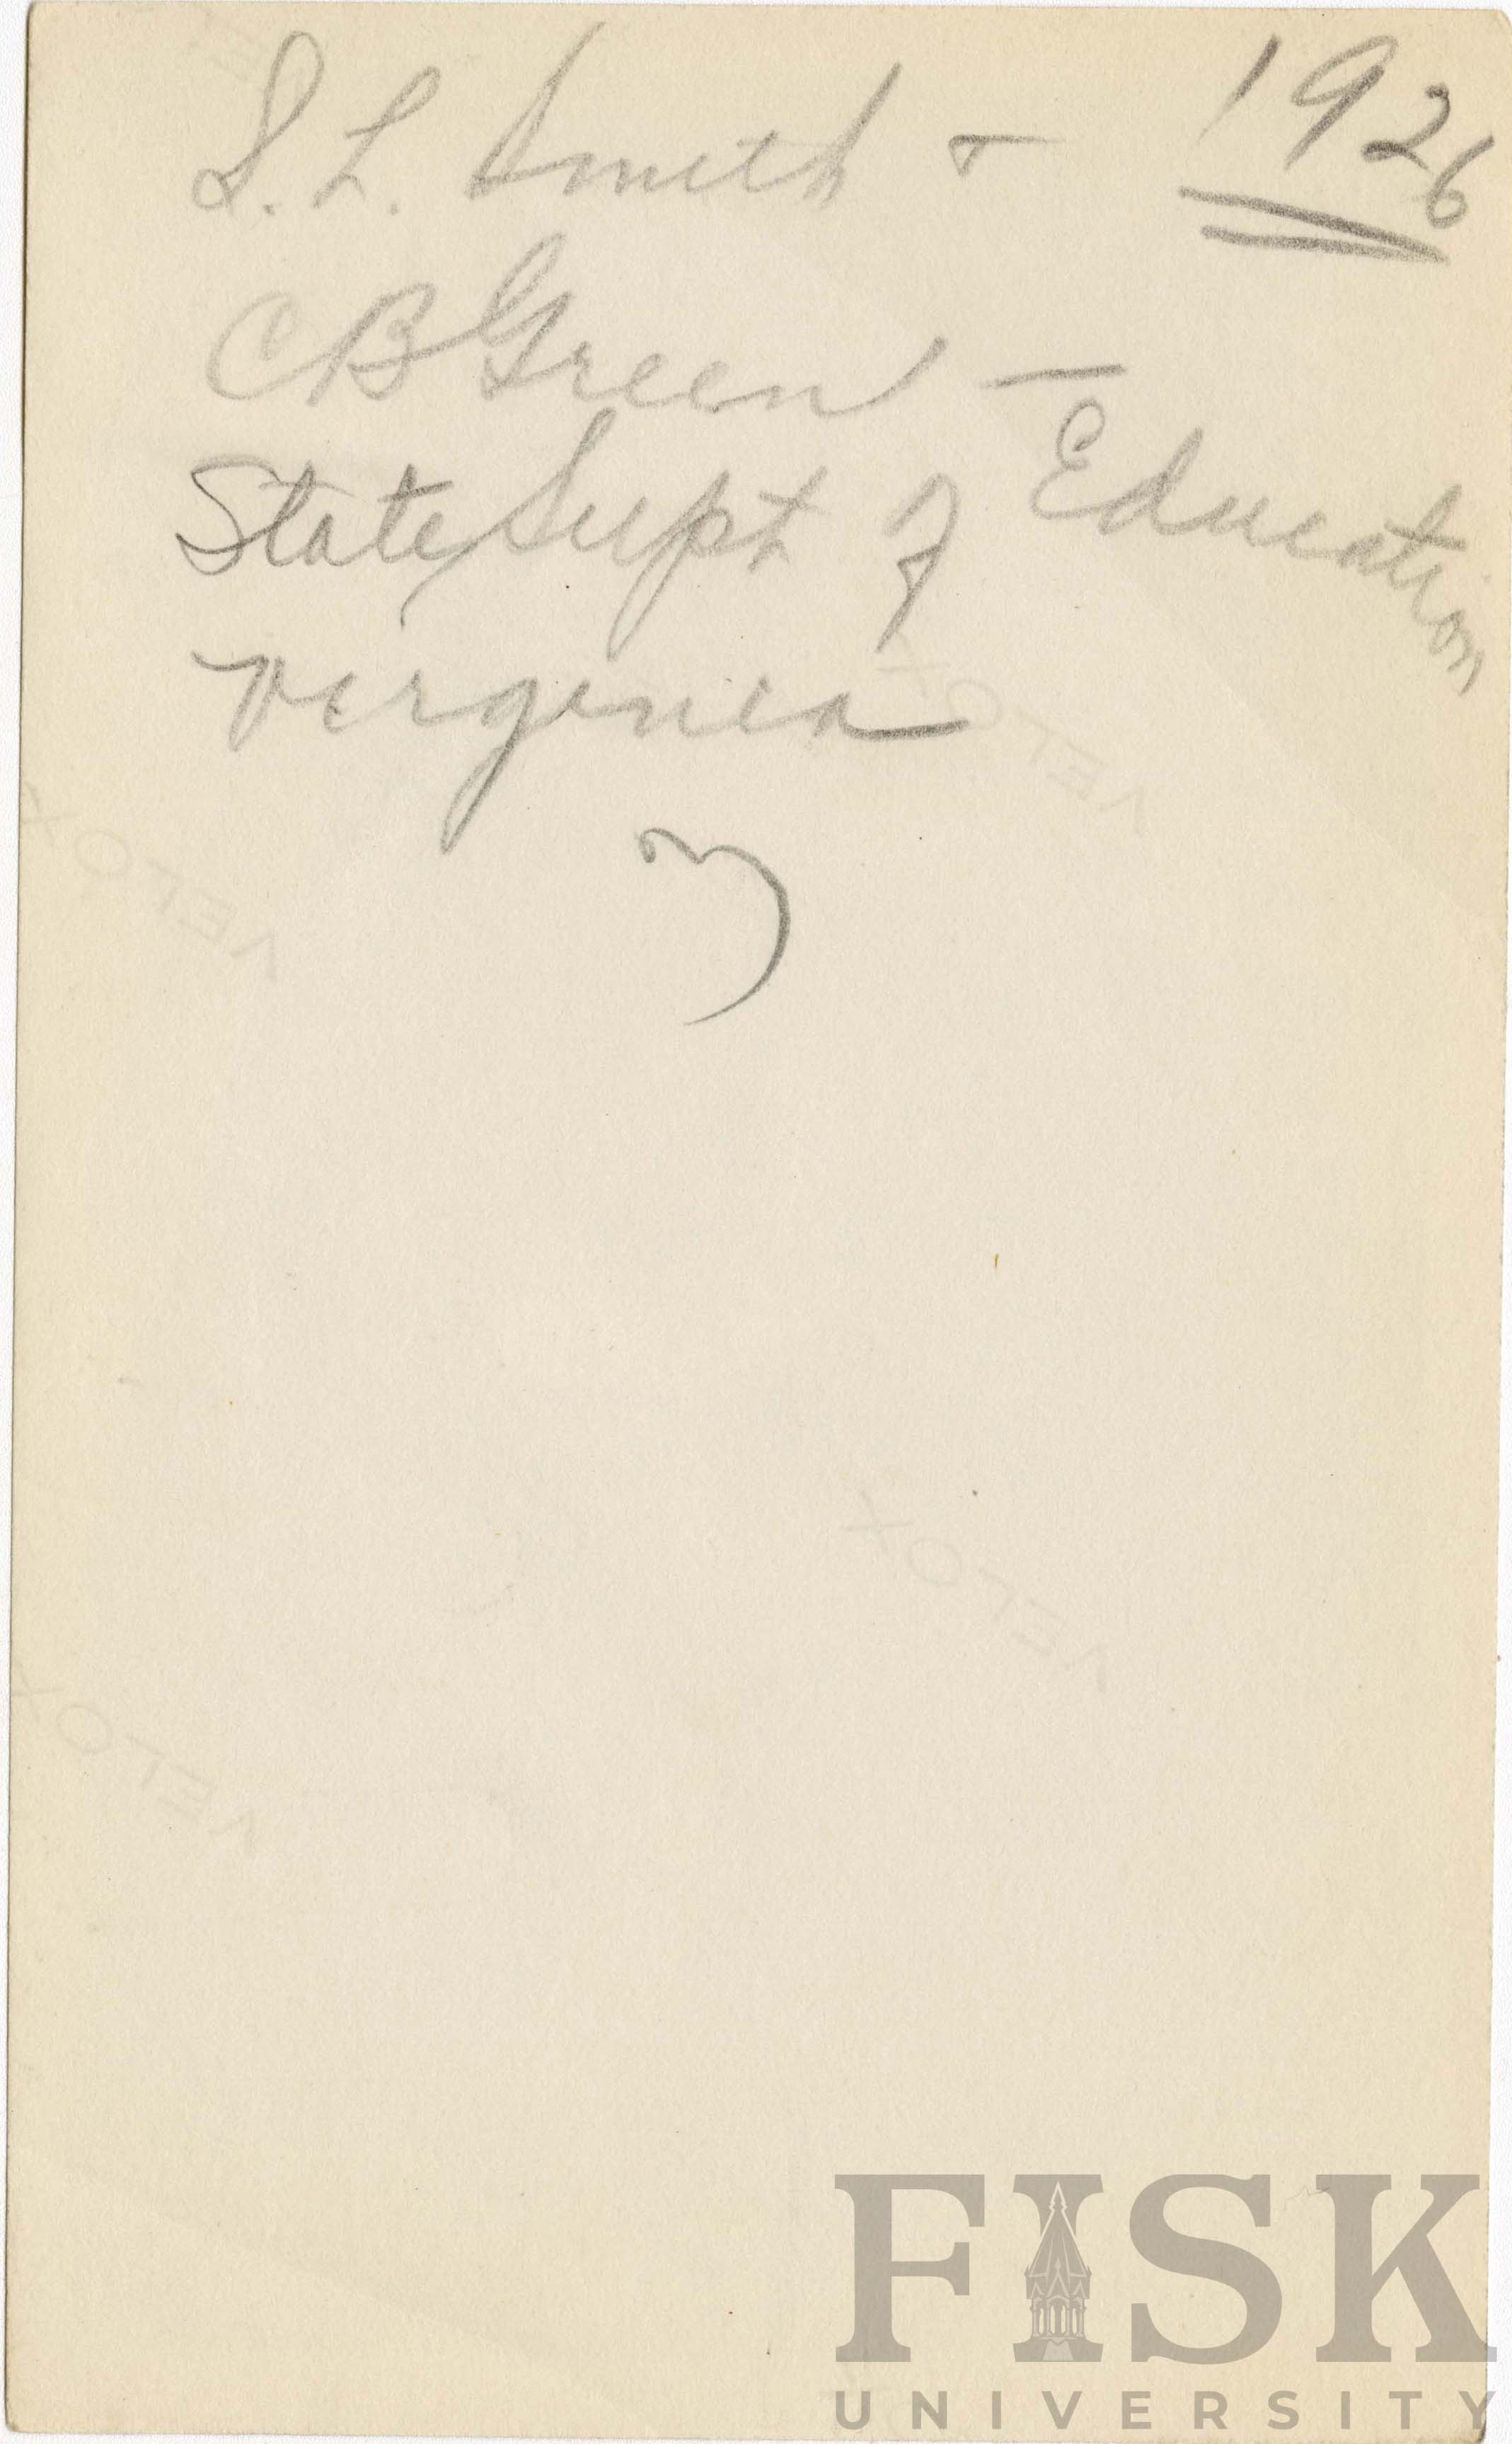 S. L. Smith + 1926
C B Green —
State Supt of Education
Virginia
VELOX
VELOX
VELOX
VELOX
FISK
UNIVERSITY